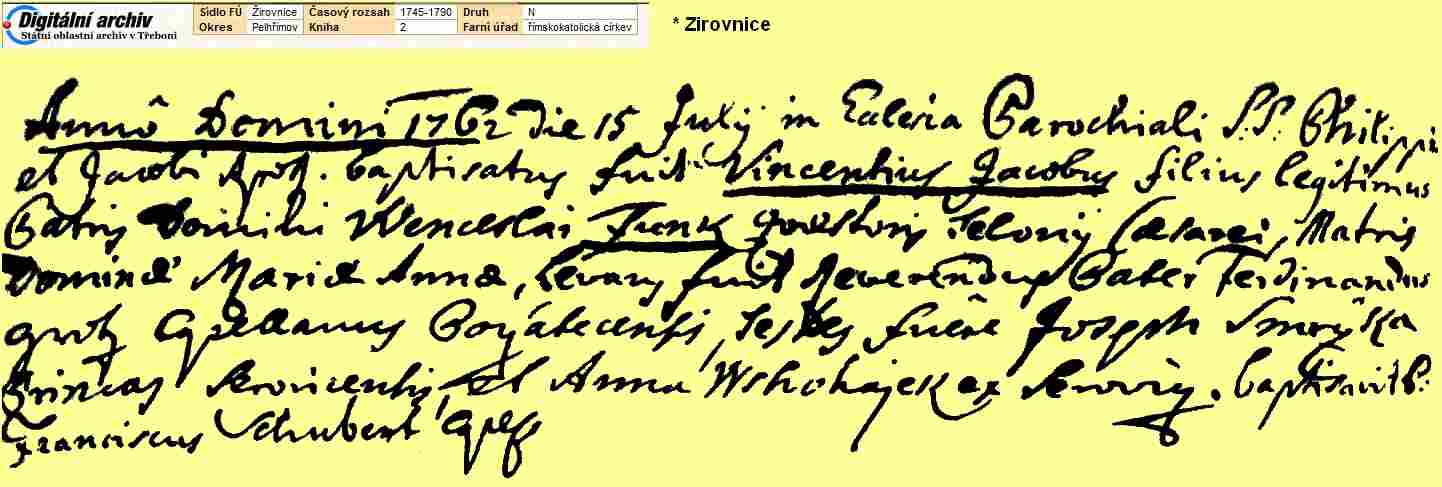 Digitální archiv
Státní oblastní archiv v Třeboni
Sídlo FÚ Žirovnice Časový rozsah 1745-1790 Druh N
Okres Pelhřimov Kniha 2 Farní úřad římskokatolická církev
* Zirovnice
Anno Domini 1762 die 15 Julij in Eclesia Parochiali S.S. Philippi
et Jacobi Apost. baptisatus fuit Vincentius Jacobus filius legitimus
Patris Domini Wenceslai Funk Telonij Caesarei, Matris
Dominae Mariae Annae, levans fuit Reverendus Pater Ferdinandus
Capellanus, Testes fuere Joseph
et Anna ex baptisavit P.
Franciscus Schubert